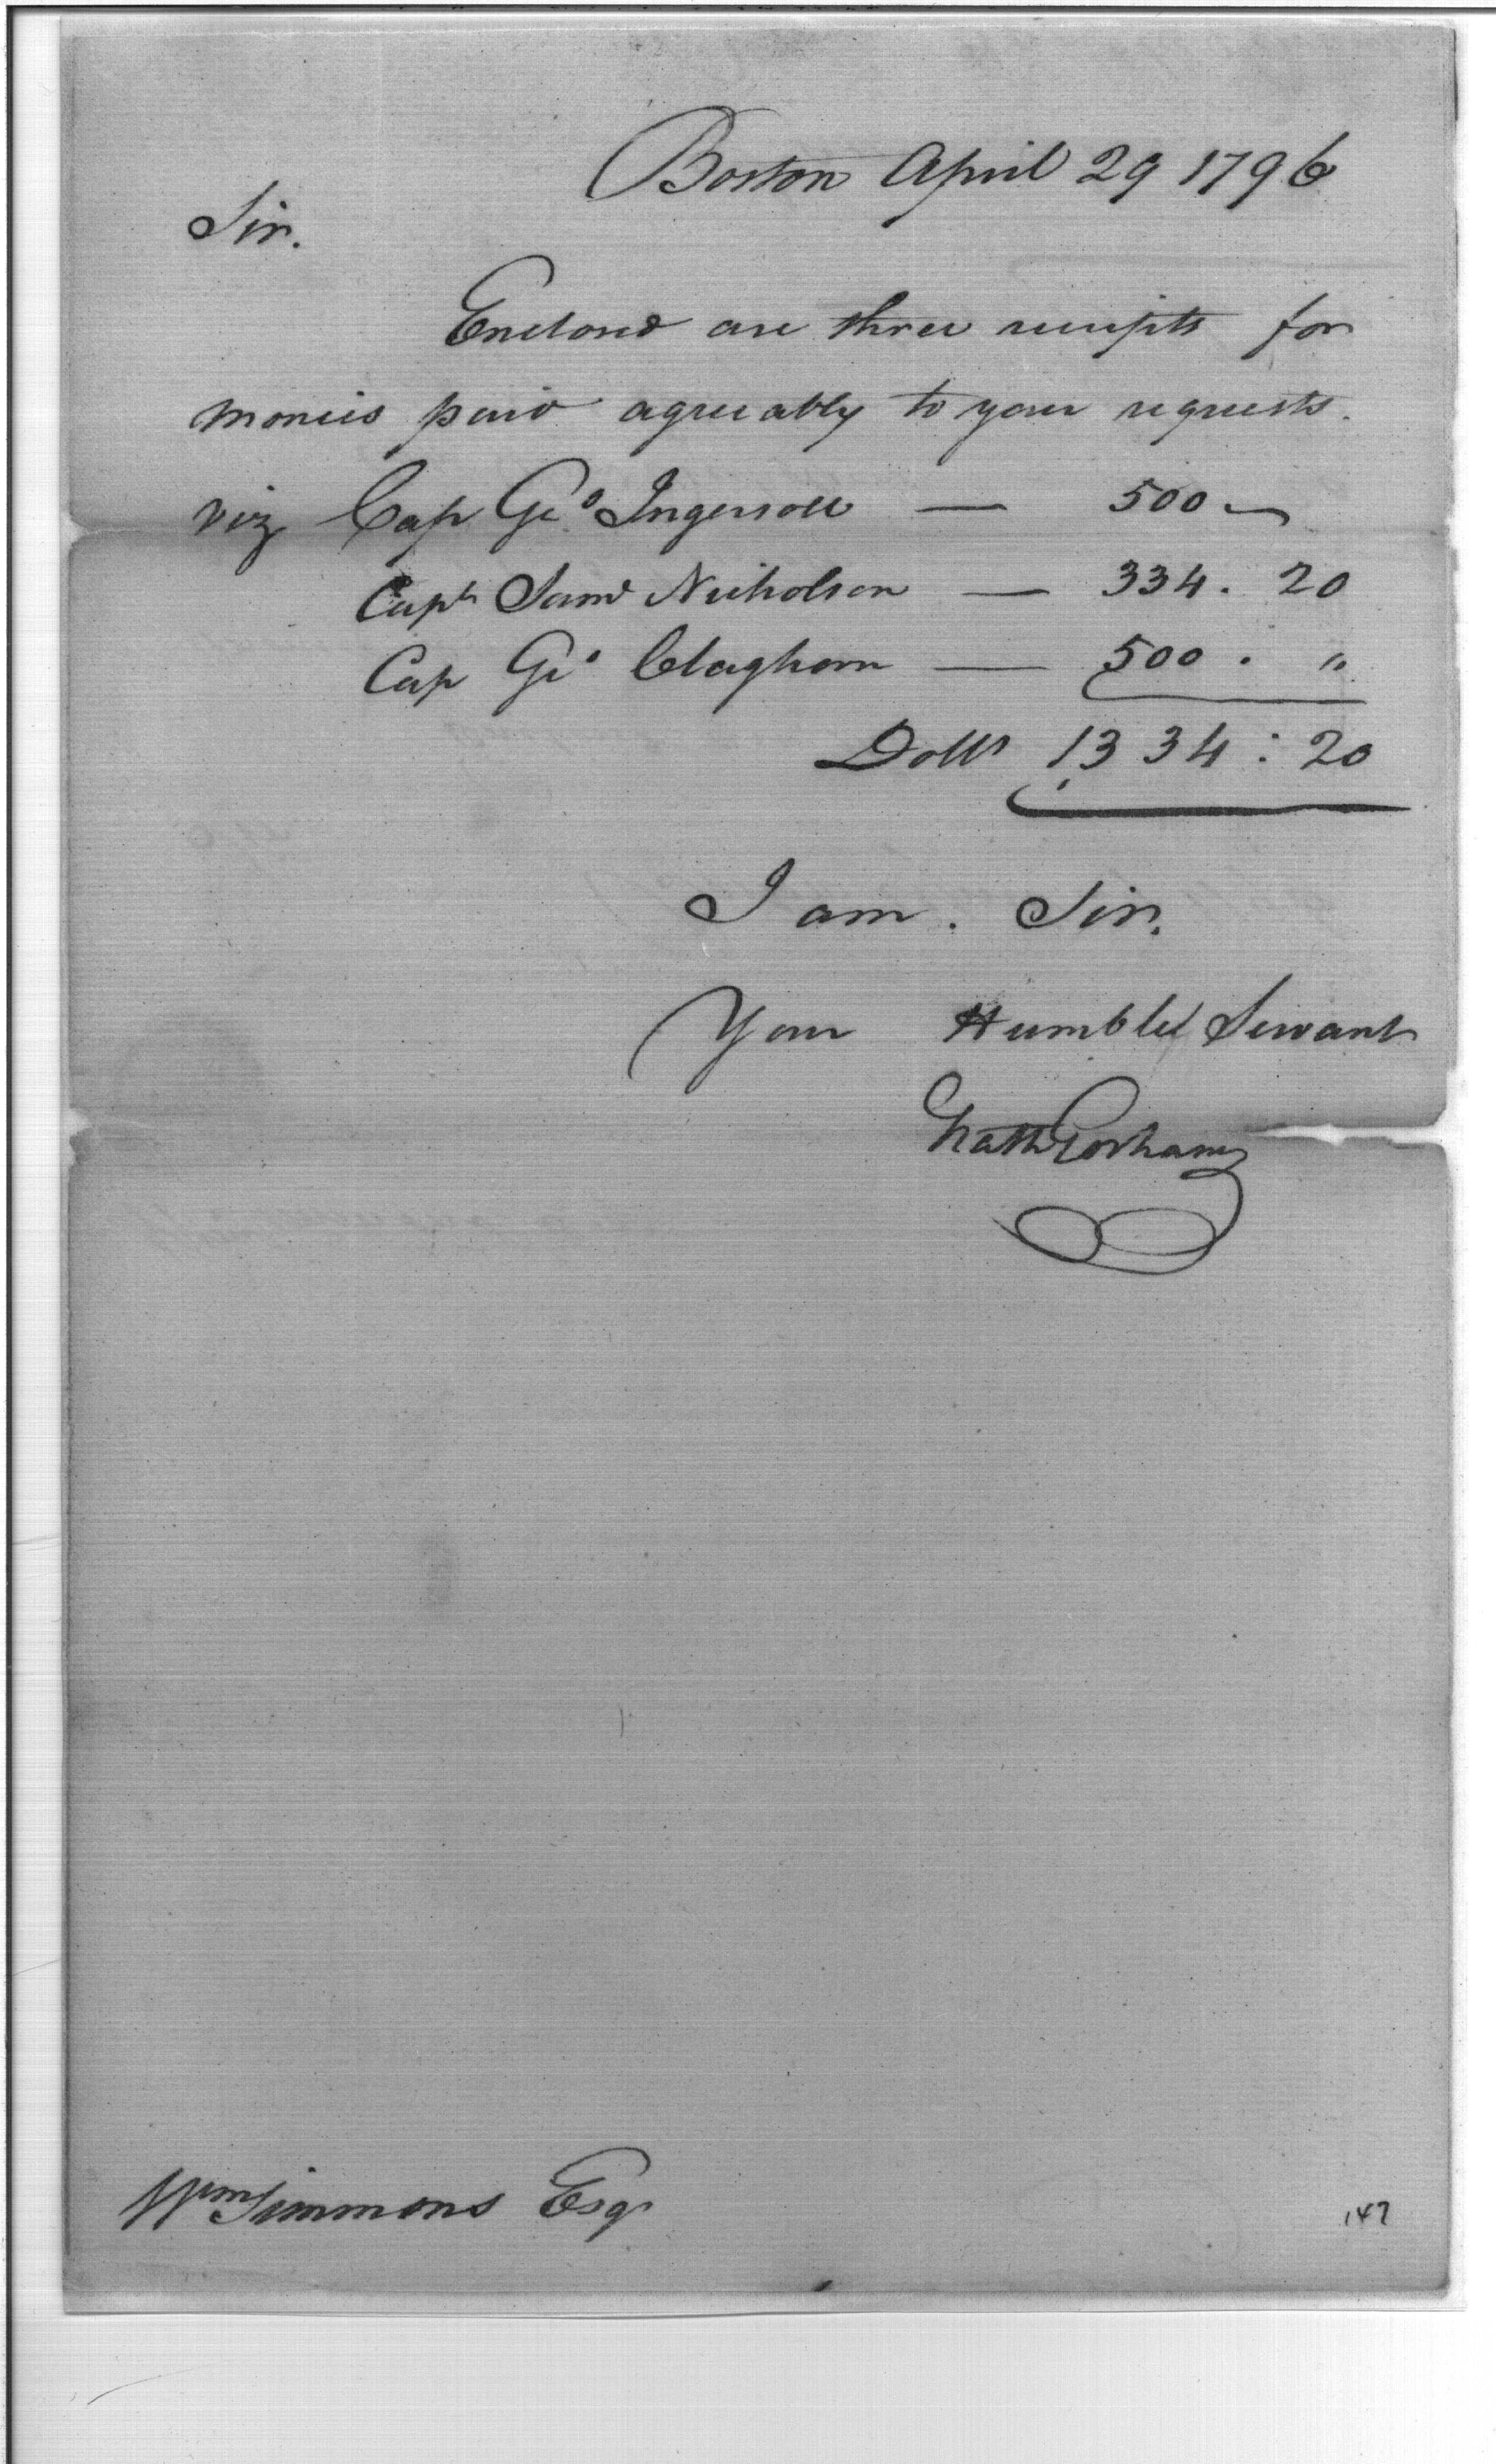 Boston April 29 1796
Sir.
Enclosed are three receipts for
monies paid agreeably to your requests.
viz Cap Geo Ingersoll — 500 —
Capt Saml Nicholson — 334. 20
Cap Geo Claghorn — 500 . "
Dolls 1334 : 20
I am. Sir.
Your Humble Servant
Nath Gorham
Wm Simmons Esqr
147